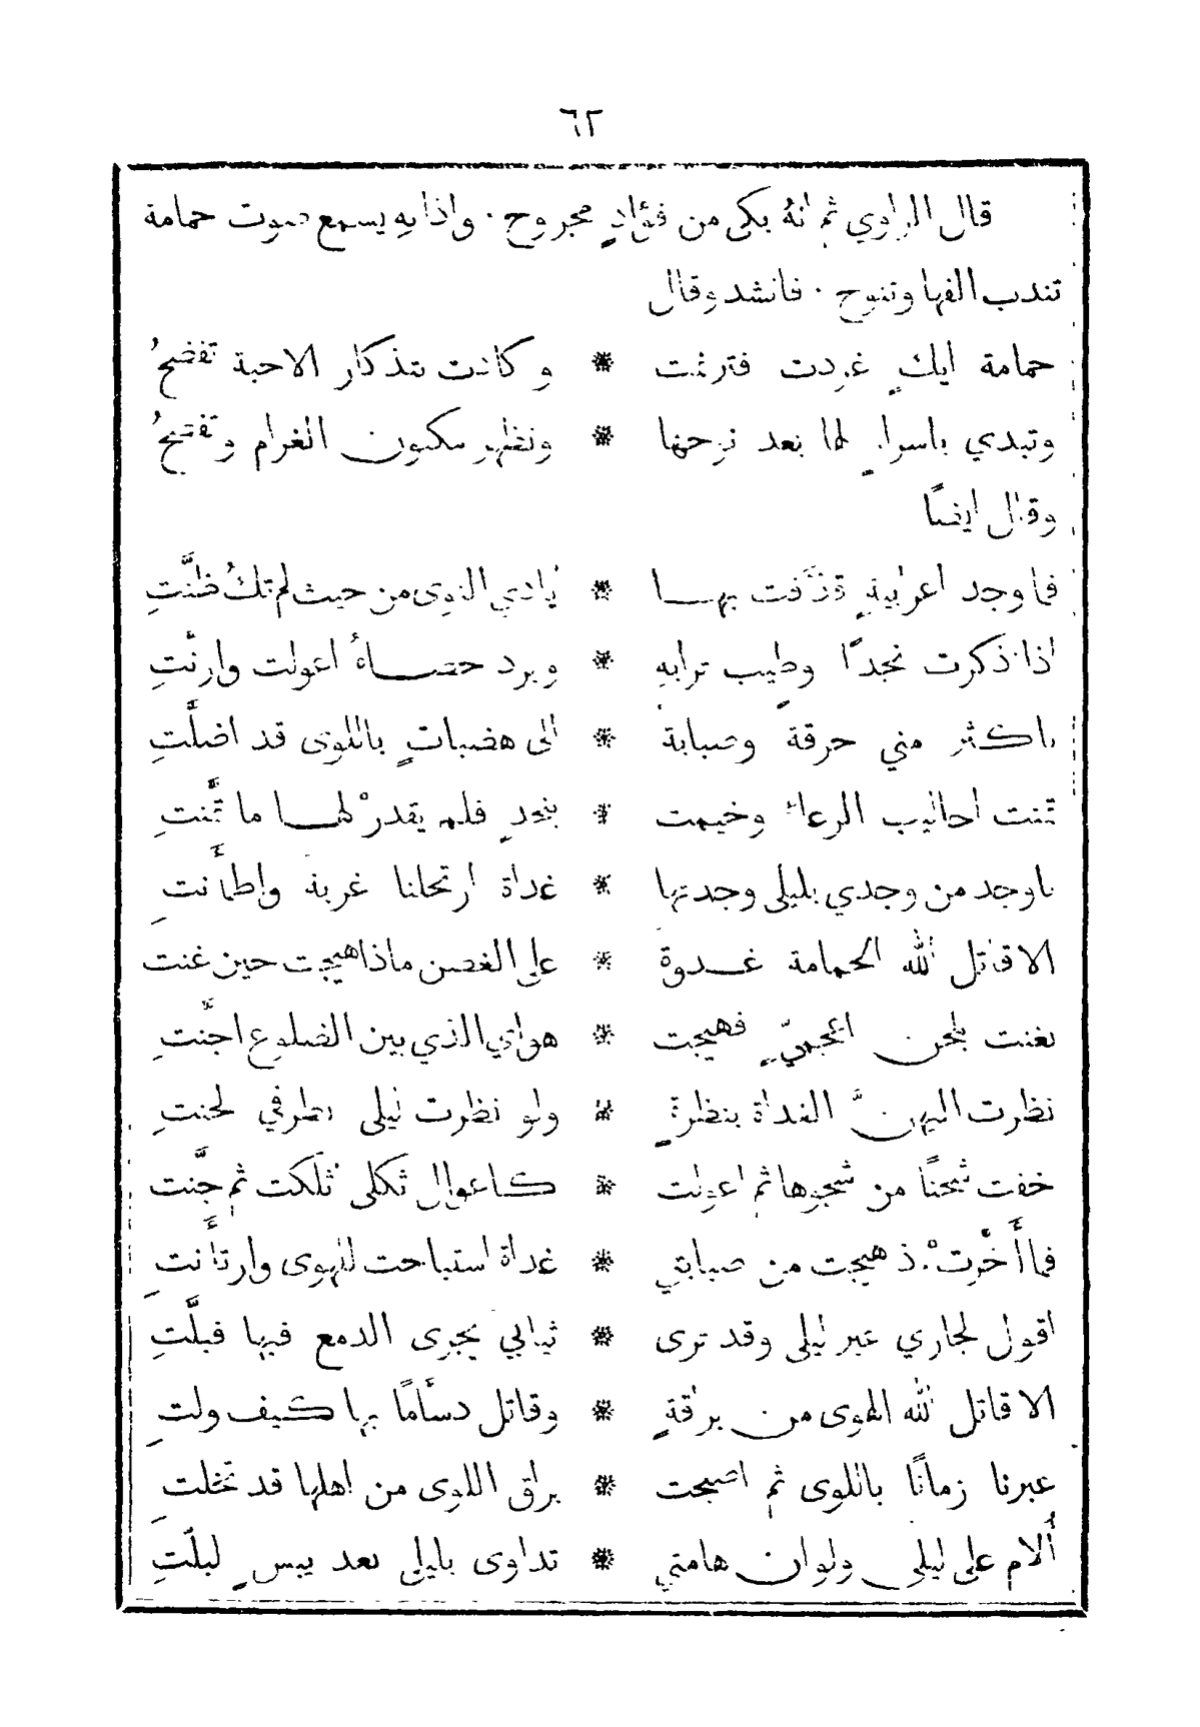 ٦٢
قال الراوي ثم انهُ بكى من فؤادٍ مجروح . واذا بهِ يسمع صوت حمامة
تندب الفها وتنوح . فانشد وقال
حمامة ايكٍ غردت فترنمت * وكانت بتذكار الاحبة تفضحُ
وتبدي باسرارٍ لما بعد نوحها * وتظهر مكنون الغرام وتفتحُ
وقال ايضًا
فما وجد اعرابيةٍ قذفت بها * ايادي النوى من حيث لم تكُ ظنَّتِ
اذا ذكرت نجدًا وطيب ترابهِ * وبرد حصاهُ اعولت وارنَّتِ
باكثر مني حرقة وصبابة * الى هضباتٍ باللوى قد اضلَّتِ
تمنت احاليب الرعاء وخيمت * بنجدٍ فلم يقدرْ لها ما تمَّنتِ
باوجد من وجدي بليلى وجدتها * غداة ارتحلنا غربة واطمأنتِ
الا قاتل الله الحمامة غدوة * على الغصن ماذا هيجت حين غنت
تغنت بلحن اعجميٍّ فهيجت * هواي الذي بين الضلوع اجَّنتِ
نظرت اليهنَّ الغداة بنظرةٍ * ولو نظرت ليلى بطرفي لجنتِ
خفت شجنًا من شجوها ثم اعولت * كاعوال ثكلى ثلكت ثم جَّنت
هيجت من صبابتي * غداة استباحت للهوى وارتأنتِ
اقول لجاري عبر ليلى وقد ترى * ثيابي يجرى الدمع فيها فبلَّتِ
الا قاتل الله الهوى من برقةٍ * وقاتل دسأمًا بها كيف ولتِ
عبرنا زمانًا باللوى ثم اصبحت * براق اللوى من اهلها قد تخلتِ
أُلام على ليلى ولو ان هامتي * تداوى بليلى بعد يبسٍ لبلَّتِ